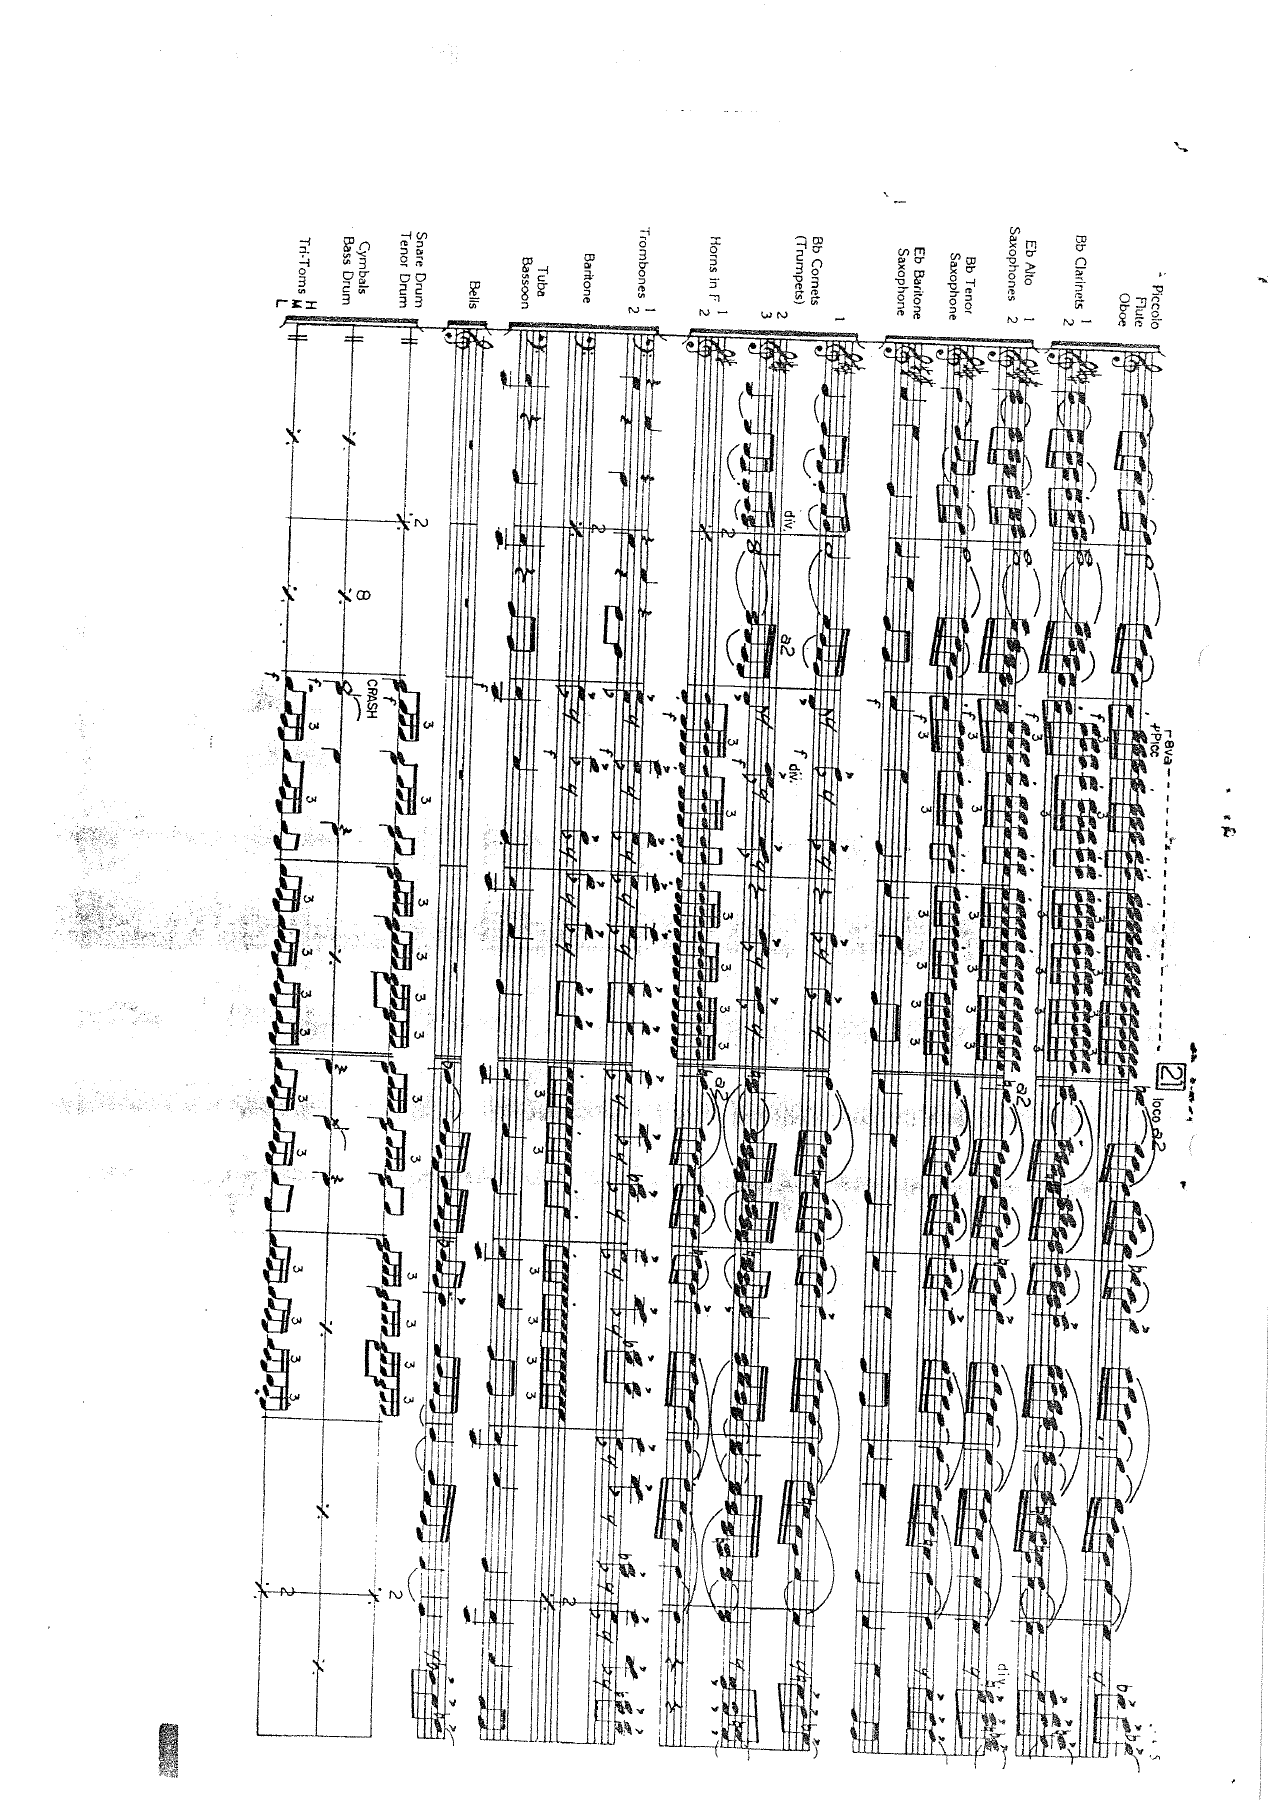 Piccolo
Flute
Oboe
Bb Clarinets 1
2
Eb Alto 1
Saxophones 2
Bb Tenor
Saxophone
Eb Baritone
Saxophone
Bb Cornets 1
(Trumpets) 2
3
Horns in F 1
2
Trombones 1
2
Baritone
Tuba
Bassoon
Bells
Snare Drum
Tenor Drum
Cymbals
Bass Drum
Tri-Toms H
M
L
8va
+Picc
21
loco a2
f 3
3
a2
div.
f 3
3
f 3
3
f
div.
a2
f div.
f
2
f
3
3
a2
f
2
3
3
f
2
2
3
3
f
2
8
CRASH
f
3
3
2